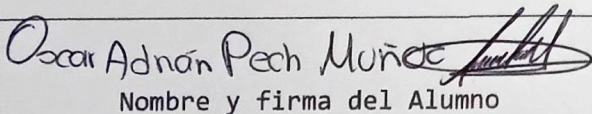 Oscar Adnán Pech Muñoz
Nombre y firma del Alumno